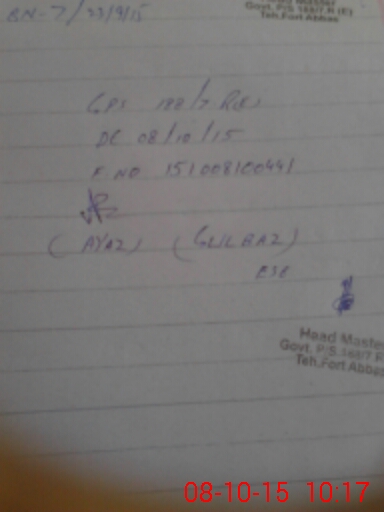 BN-7/23/9/15
Head Master
Govt. P/S 188/7.R (E)
Teh.Fort Abbas
GPS 188/7R(E)
DE 08/10/15
F NO 151008100441
(AYAZ) (GULBAZ)
ESE
Head Maste
Govt. P/S.188/7 R
Teh.Fort Abbas
08-10-15 10:17